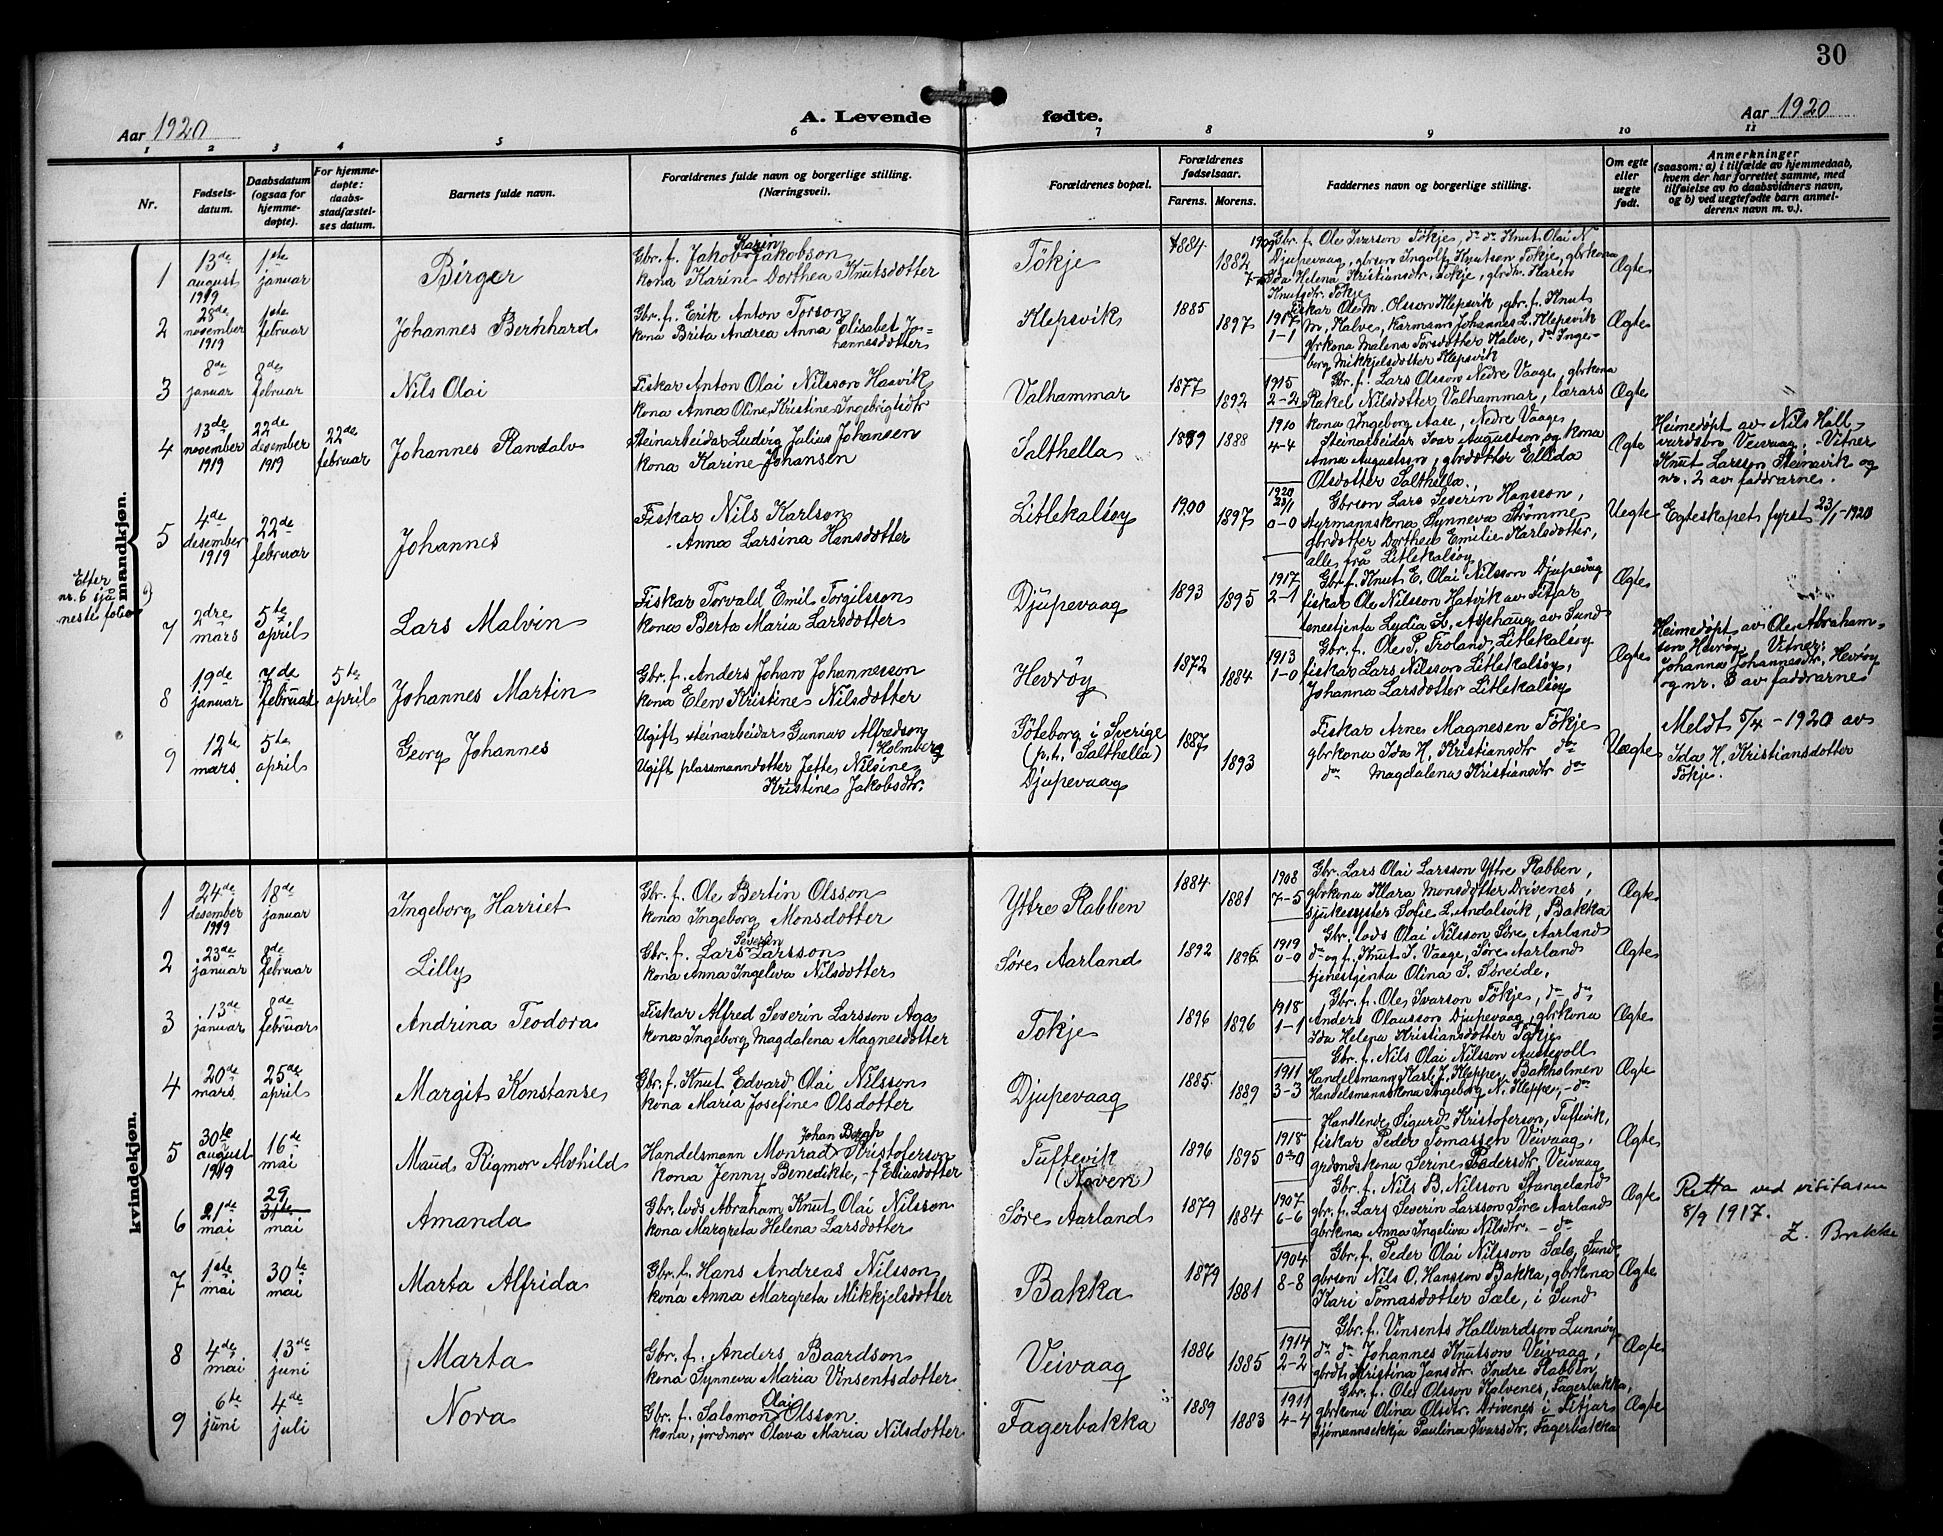 30
Aar 1920
A. Levende fødte.
Aar 1920
1 2 3 4 5 6 7 8 9 10 11
Nr.
Fødsels-
datum.
Daabsdatum
(ogsaa for
hjemme-
døpte).
For hjemme-
døpte:
daabs-
stadfæstel-
ses datum.
Barnets fulde navn.
Forældrenes fulde navn og borgerlige stilling.
(Næringsvei).
Forældrenes bopæl.
Forældrenes
fødselsaar.
Farens. Morens.
Faddernes navn og borgerlige stilling.
Om egte
eller
uegte
født.
Anmerkninger
(saasom: a) i tilfælde av hjemmedaab,
hvem der har forrettet samme, med
tilføielse av to daabsvidners navn,
og b) ved uegtefødte barn anmel-
derens navn m. v.).
mandkjøn.
1
13de
august
1919
1ste
januar
Birger
Karin
Gbr. f. Jakob Jakobson
kona Karine Dorthea Knutsdotter
Tökje
1884
1882
1909
Gbr. f. Ole Ivarson Tökje, do do Knut Olai N
Djupevaag, gbrson Ingolf Knutson Tökje, gbrkona
Ida Helena Kristiansdtr. Tökje, gbrdtr. Karen
Knutsdtr. Tökje
Ægte
2
28de
november
1919
1ste
februar
Johannes Bernhard
Gbr. f. Erik Anton Torson
kona Brita Andrea Anna Elisabet Jo-
hannesdotter
Klepsvik
1885
1897
1917
1-1
Fiskar Ole M. Olsson Klepsvik, gbr. f. Knut
M. Kalve, Karmann Johannes L. Klepsvik
gbrkona Malena Torsdotter Kalve, do Inge-
borg Mikkjelsdotter Klepsvik
Ægte
3
8de
januar
8de
februar
Nils Olai
Fiskar Anton Olai Nilsson Haavik
kona Anna Oline Kristine Ingebrigtsdtr
Valhammar
1877
1892
1915
2-2
Gbr. f. Lars Olsson Nedre Vaage, gbrkona
Rakel Nilsdotter Valhammar, lærars
kona Ingeborg Aase, Nedre Vaage
Ægte
4
13de
november
1919
22de
desember
1919
22de
februar
Johannes Randalv
Steinarbeidar Ludvig Julius Johansen
kona Karine Johansen
Salthella
1889
1888
1910
4-4
Steinarbeidar Ivar Augustson og kona
Anna Augustson, gbrdotter Ellida
Olsdotter Salthella.
Ægte
Heimedøpt av Nils Hall-
vardsbn Veivaag. Vitner
Knut Larsson Steinsvik og
nr. 2 av faddrarne.
5
4de
desember
1919
22de
februar
Johannes
Fiskar Nils Karlson
Anna Larsina Hansdotter
Litlekalsøy
1900
1897
1920
23/1
0-0
Gbrson Lars Severin Hansson,
styrmannskona Synneva Strømme
gbrdotter Dorthea Emilie Karlsdotter,
alle frå Litlekalsøy
Uegte
Egteskapet fyrst 23/1-1920
Etter
nr. 6 sjaa
neste folio
6)
7
2dre
mars
5te
april
Lars Malvin
Fiskar Torvald Emil Torgilsson
kona Berta Maria Larsdotter
Djupevaag
1893
1895
1917
2-1
Gbr. f. Knut E. Olai Nilsson Djupevaag
fiskar Ole Nilsson Hatvik av Fitjar
tenestjenta Lydia L. Asphaug av Sund
Ægte
8
19de
januar
7de
februar
5te
april
Johannes Martin
Gbr. f. Anders Johan Johannesson
kona Elen Kristine Nilsdotter
Hevrøy
1872
1884
1913
1-0
Gbr. f. Ole P. Troland, Litlekalsøy
fiskar Lars Nilsson Litlekalsøy,
Johanna Larsdotter Litlekalsøy
Ægte
Heimedøpt av Ole Abraham-
son Hevrøy. Vitner:
Johanna Johannesdtr. Hevrøy
og nr. 3 av faddrarne
9
12te
mars
5te
april
Georg Johannes
Ugift steinarbeidar Gunnar Alfredson
Holmberg
Ugift plassmanndotter Jette Nilsine
Kristine Jakobsdtr.
Göteborg i Sverige
(p.t. Salthella)
Djupevaag
1887
1893
Fiskar Arne Magnesen Tökje
gbrkona Ida H. Kristiansdtr do
do Magdalena Kristiansdtr do
Uegte
Meldt 5/4-1920 av
Ida H. Kristiansdotter
Tökje.
kvindekjøn.
1
24de
desember
1919
18de
januar
Ingeborg Harriet
Gbr. f. Ole Bertin Olsson
kona Ingeborg Monsdotter
Yttre Rabben
1884
1881
1908
7-5
Gbr. Lars Olai Larsson Yttre Rabben,
gbrkona Klara Monsdotter Drivenes,
sjukesyster Sofie L. Andalsvik, Bakka
Ægte
2
23de
januar
8de
februar
Lilly
Severin
Gbr. f. Lars Larsson
kona Anna Ingeliva Nilsdotter
Søre Aarland
1892
1896
1919
0-0
Gbr. lods Olai Nilsson Søre Aarland
do og f. Knut I. Vaage, Søre Aarland
tjenestjenta Olina S. Søreide.
Ægte
3
13de
januar
8de
februar
Andrina Teodora
Fiskar Alfred Severin Larsson Aga
kona Ingeborg Magdalena Magnesdotter
Tokje
1896
1896
1918
1-1
Gbr. f. Ole Ivarson Tökje, do do
Anders Olausson Djupevaag, gbrkona
Ida Helena Kristiansdotter Tökje
Ægte
4
20de
mars
25de
april
Margit Konstanse
Gbr. f. Knut Edvard Olai Nilsson
kona Maria Josefine Olsdotter
Djupevaag
1885
1889
1911
3-3
Gbr. f. Nils Olai Nilsson Austevoll
Handelsmann Karl J. Kleppe, Bakholmen
Handelsmannskona Ingeborg N. Kleppe, - do
Ægte
5
30te
august
1919
16de
mai
Maud Rigmor Alvhild
Johan Bergh
Handelsmann Monrad Kristoferson
kona Jenny Benedikte, - f Eliasdotter
Tuftevik
1896
1895
1918
0-0
Handlende Sigurd Kristoferson, Tuftevik,
fiskar Peder Tomassen Veivaag,
grdmdskona Serine Pedersdtr, Veivaag
Ægte
6
21de
mai
29
31te
mai
Amanda
Gbr. lods Abraham Knut Olai Nilsson
kona Margreta Helena Larsdotter
Søre Aarland
1879
1884
1907
6-6
Gbr. f. Nils B. Nilsson Stangeland
gbr. f. Lars Severin Larsson Søre Aarland
gbrkona Anna Ingeliva Nilsdtr. - do
Ægte
Retta ved visitasen
8/9 1917.
Z. Brekke
7
1ste
mai
30te
mai
Marta Alfrida
Gbr. f. Hans Andreas Nilsson
kona Anna Margreta Mikkjelsdotter
Bakka
1879
1881
1904
8-8
Gbr. f. Peder Olai Nilsson Sæle, Sund
gbrson Nils O. Hansson Bakka, gbrkona
Kari Tomasdotter Sæle, i Sund
Ægte
8
4de
mai
13de
juni
Marta
Gbr. f. Anders Baardson
kona Synneva Maria Vinsentsdotter
Veivaag
1886
1885
1914
2-2
Gbr. f. Vinsents Hallvardson Lunnøy
do do Johannes Knutson Veivaag,
gbrdt. Kristina Jansdtr. Indre Rabben
Ægte
9
6te
juni
4de
juli
Nora
Olai
Gbr. f. Salomon Olsson
kona, jordmor Olava Maria Nilsdotter
Fagerbakka
1889
1883
1911
4-4
Gbr. f. Ole Olsson Kalvenes, Fagerbakka,
gbrkona Olina Olsdtr. Drivenes i Fitjar
Sjömannsekkja Paulina Ivarsdtr. Fagerbakka
Ægte